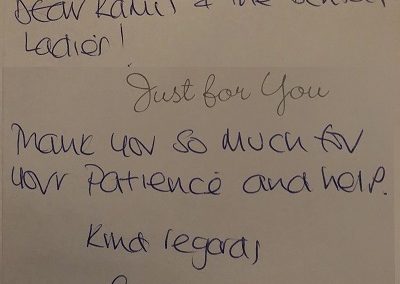 Dear & The
Ladies!
Just for You
Thank you so much for
your patience and help.
Kind regards,